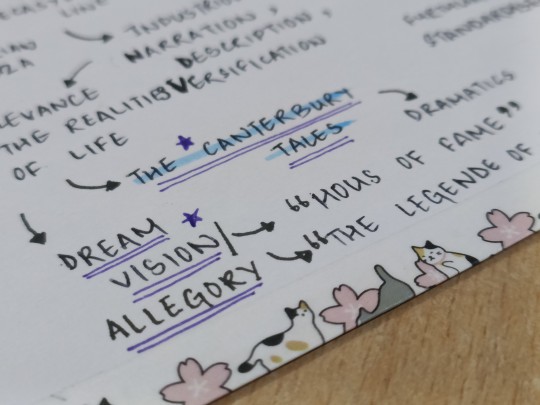 LINE
NARRATION,
DESCRIPTION,
VERSIFICATION
THE REALITIES
OF LIFE
THE CANTERBURY
TALES
DRAMATICS
DREAM
VISION/
ALLEGORY
“HOUS OF FAME”
“THE LEGENDE OF